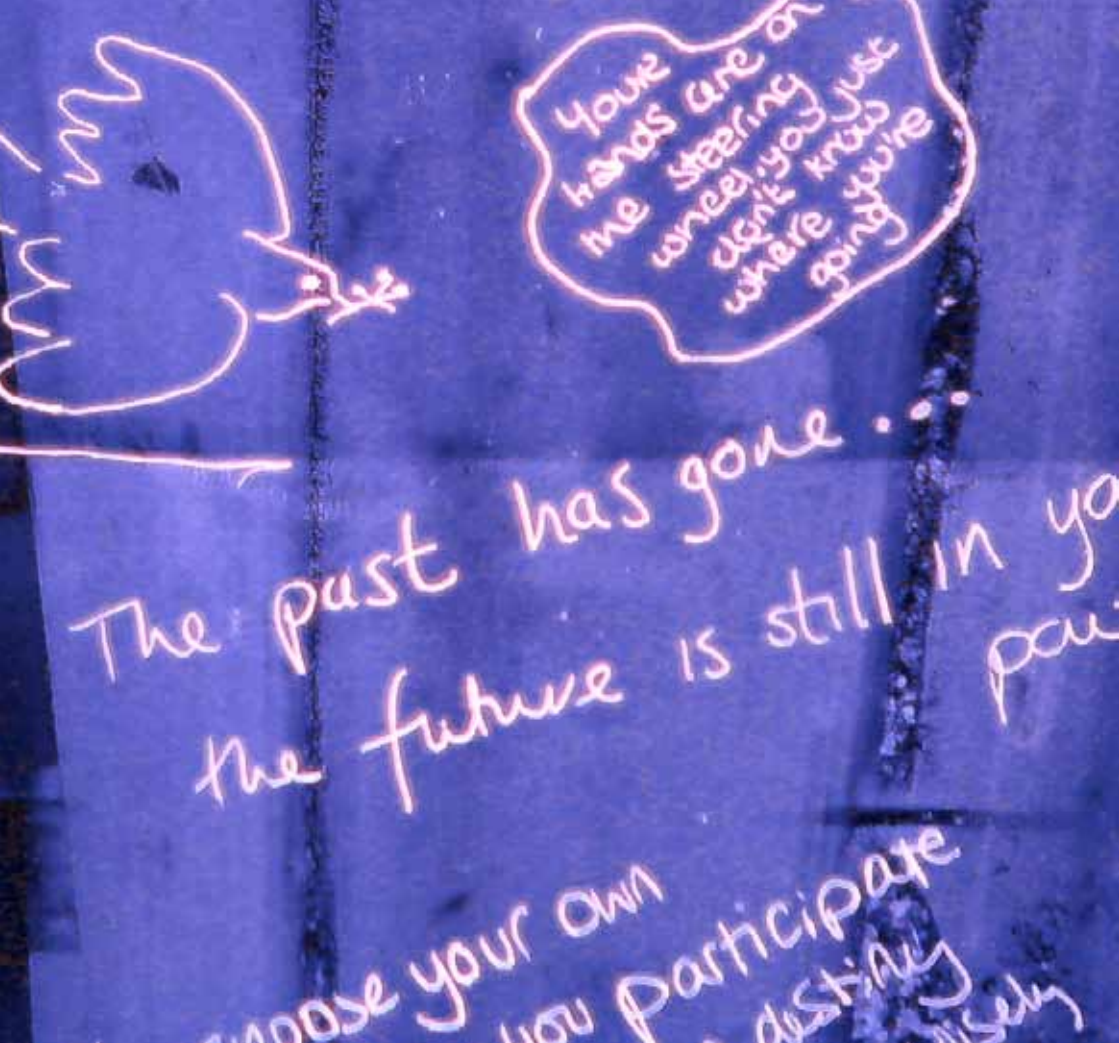 Your
hands are on
the steering
wheel, you just
don't know
where you're
going
The past has gone....
the future is still in yo
pow
choose your own
you participate
destiny
wisely